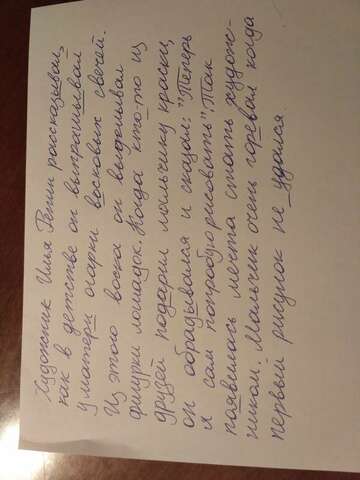 Художник Илья Репин рассказывал,
как в детстве он выпрашивал
у матери огарки восковых свечей.
Из этого воска он выделывал
фигурки лошадок. Когда кто-то из
друзей подарил мальчику краски,
он обрадывался и сказал: "Теперь
я сам попробую рисовать". Так
появилась мечта стать худож-
ником. Мальчик очень горевал когда
первый рисунок не удался